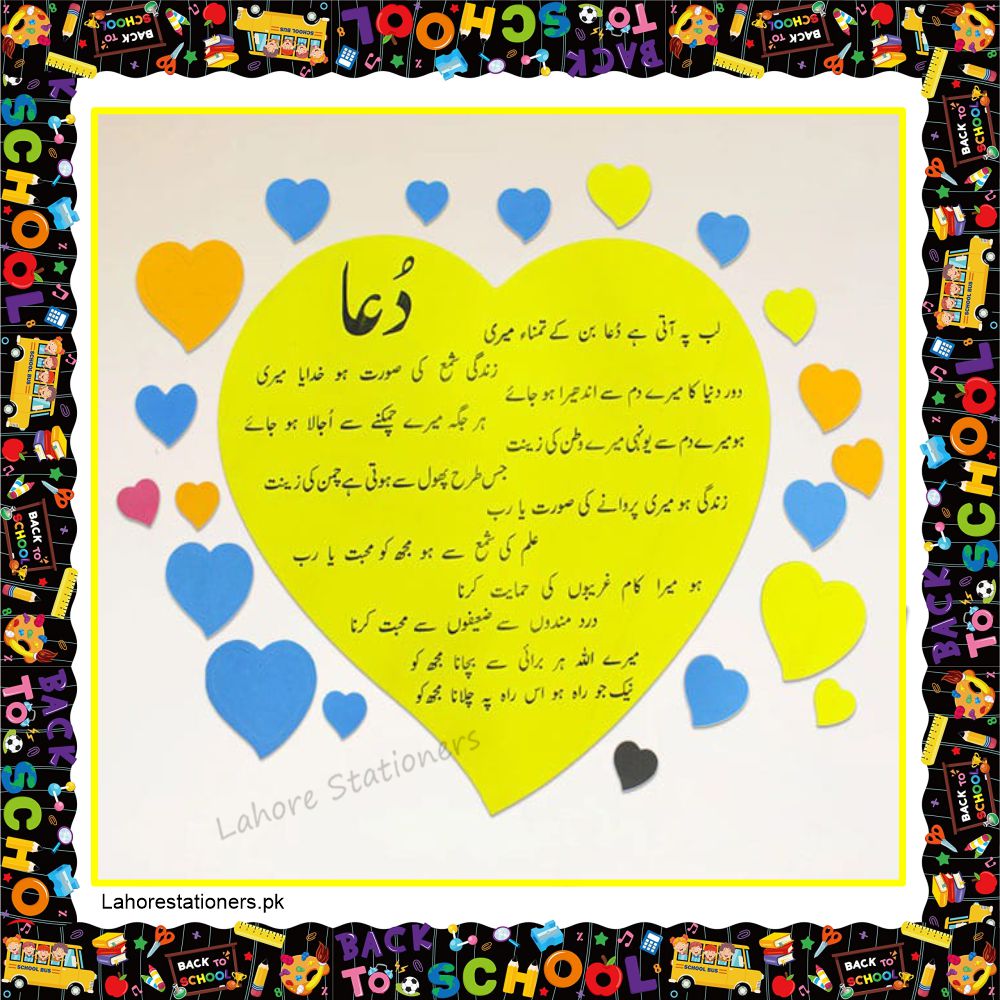 BACK TO SCHOOL
SCHOOL BUS
دُعا
لب پہ آتی ہے دُعا بن کے تمناء میری
زندگی شمع کی صورت ہو خدایا میری
دور دنیا کا میرے دم سے اندھیرا ہو جائے
ہر جگہ میرے چمکنے سے اُجالا ہو جائے
ہو میرے دم سے یونہی میرے وطن کی زینت
جس طرح پھول سے ہوتی ہے چمن کی زینت
زندگی ہو میری پروانے کی صورت یا رب
علم کی شمع سے ہو مجھ کو محبت یا رب
ہو میرا کام غریبوں کی حمایت کرنا
درد مندوں سے ضعیفوں سے محبت کرنا
میرے اللہ ہر برائی سے بچانا مجھ کو
نیک جو راہ ہو اس راہ پہ چلانا مجھ کو
Lahore Stationers
Lahorestationers.pk
SCHOOL BUS
BACK TO SCHOOL
BACK TO SCHOOL
BACK TO SCHOOL